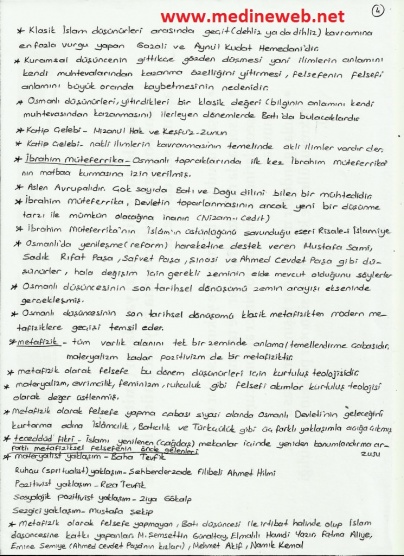 www.medineweb.net
4
* Klasik İslam düşünürleri arasında geçit (dehliz ya da dihliz) kavramına
en fazla vurgu yapan Gazali ve Aynül Kudat Hemedani'dir.
* Kuramsal düşüncenin gittikçe gözden düşmesi yani ilimlerin anlamını
kendi muhtevalarından kazanma özelliğini yitirmesi, felsefenin felsefi
anlamını büyük oranda kaybetmesinin nedenidir.
* Osmanlı düşünürleri, yitirdikleri bir klasik değeri (bilginin anlamını kendi
muhtevasından kazanmasını) ilerleyen dönemlerde Batı'da bulacaklardır
* Katip Çelebi - Mizanül Hak ve Keşfü'z-Zunun
* Katip Çelebi - nakli ilimlerin kavranmasının temelinde akli ilimler vardır der.
* İbrahim müteferrika - Osmanlı topraklarında ilk kez İbrahim müteferrika'
nın matbaa kurmasına izin verilmiş.
* Aslen Avrupalıdır. Çok sayıda Batı ve Doğu dilini bilen bir mühtedidir.
* İbrahim müteferrika, Devletin toparlanmasının ancak yeni bir düşünme
tarzı ile mümkün olacağına inanır. (Nizam-ı Cedit)
* İbrahim müteferrika'nın İslâm'ın üstünlüğünü savunduğu eseri Risale-i İslamiye
* Osmanlı'da yenileşme (reform) hareketine destek veren Mustafa Sami,
Sadık Rıfat Paşa, Safvet Paşa, Şinasi ve Ahmed Cevdet Paşa gibi dü-
şünürler, hala değişim için gerekli zeminin elde mevcut olduğunu söylerler
* Osmanlı düşüncesinin son tarihsel dönüşümü zemin arayışı ekseninde
gerçekleşmiş.
* Osmanlı düşüncesinin son tarihsel dönüşümü klasik metafizikten modern me-
tafiziklere geçişi temsil eder.
* metafizik - tüm varlık alanını tek bir zeminde anlama/temellendirme çabasıdır.
materyalizm kadar pozitivizm de bir metafiziktir.
* metafizik olarak felsefe bu dönem düşünürleri için kurtuluş teolojisidir
* materyalizm, evrimcilik, feminizm, ruhçuluk gibi felsefi akımlar kurtuluş teolojisi
olarak değer üstlenmiş.
* Metafizik olarak felsefe yapma çabası siyasi alanda Osmanlı Devleti'nin geleceğini
kurtarma adına İslâmcılık, Batıcılık ve Türkçülük gibi üç farklı yaklaşımla açığa çıkmış
* teceddüd fikri - islamı yenilenen (çağdaş) mekanlar içinde yeniden konumlandırma ar-
zusu
farklı metafiziksel felsefenin önde gelenleri
* materyalist yaklaşım - Baha Tevfik
Ruhçu (spritualist) yaklaşım - Şehbenderzade Filibeli Ahmet Hilmi
Pozitivist yaklaşım - Rıza Tevfik
Sosyolojik pozitivist yaklaşım - Ziya Gökalp
Sezgici yaklaşım - Mustafa Şekip
* Metafizik olarak felsefe yapmayan, Batı düşüncesi ile irtibat halinde olup İslam
düşüncesine katkı yapanlar M. Şemsettin Günaltay, Elmalılı Hamdi Yazır, Fatma Aliye,
Emine Semiye (Ahmed Cevdet Paşa'nın kızları), Mehmet Akif, Namık Kemal